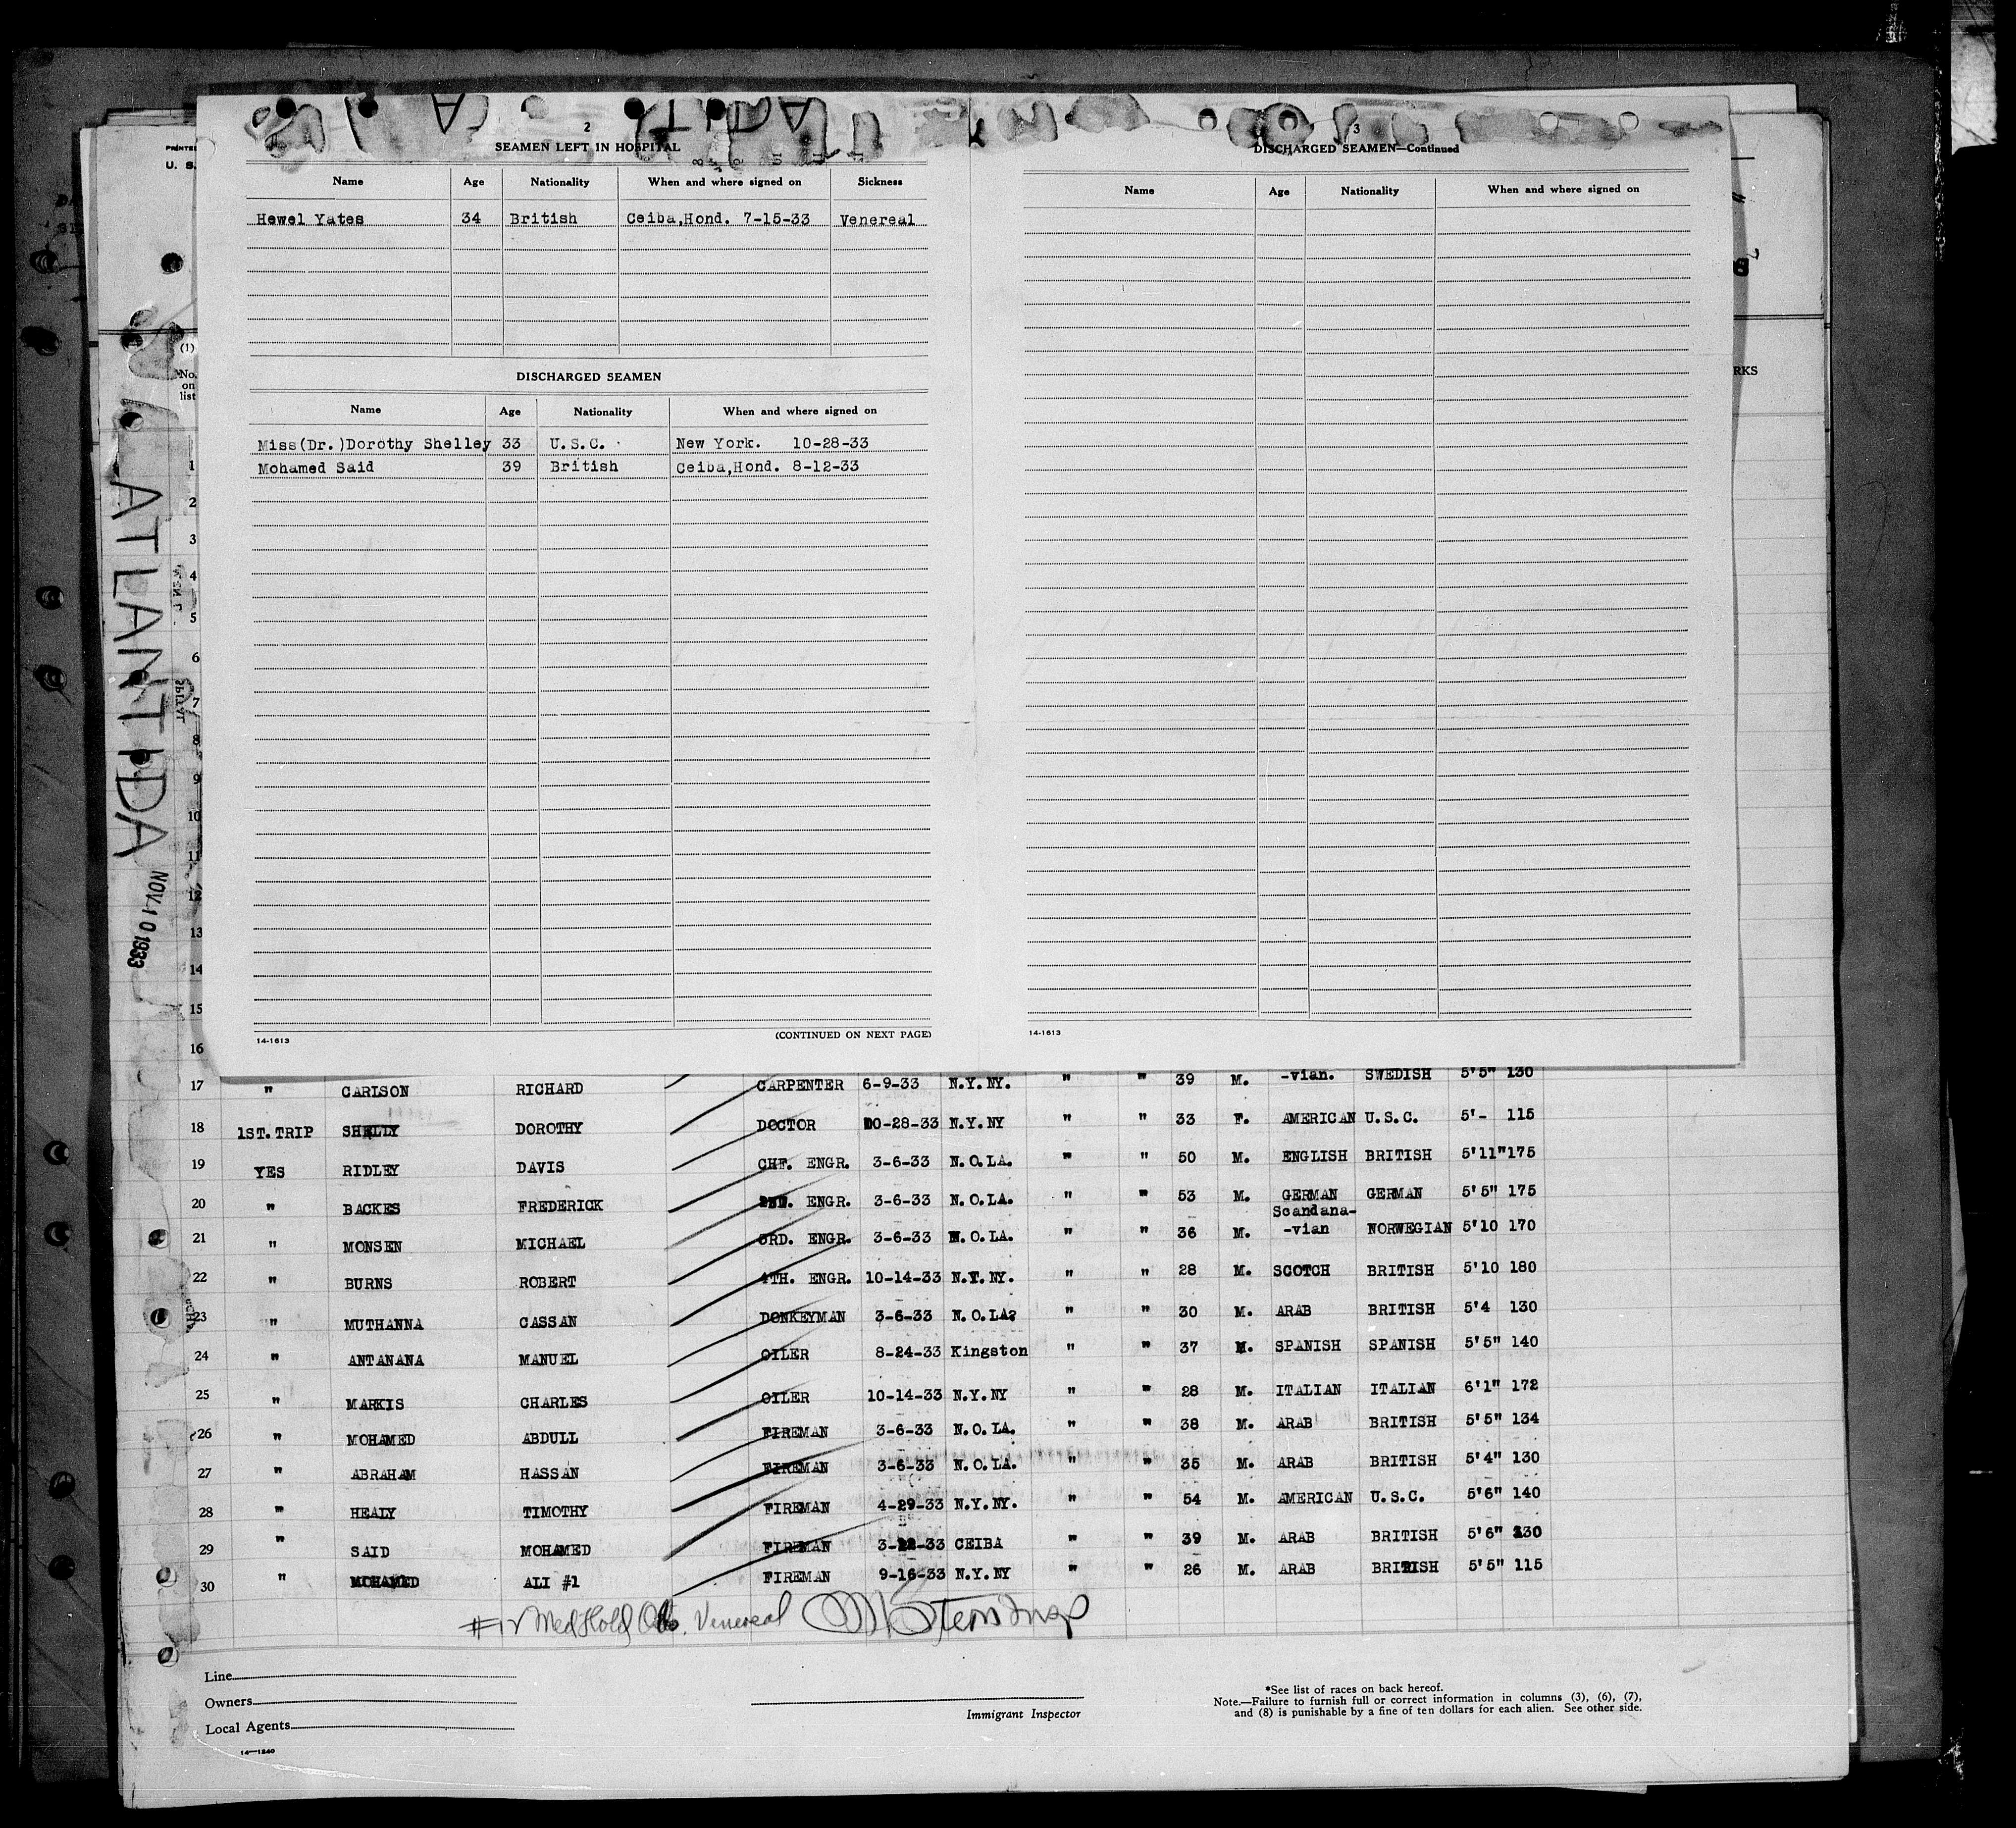 2
SEAMEN LEFT IN HOSPITAL
Name Age Nationality When and where signed on Sickness
Hewel Yates 34 British Ceiba,Hond. 7-15-33 Venereal
DISCHARGED SEAMEN
Name Age Nationality When and where signed on
Miss(Dr.)Dorothy Shelley 33 U.S.C. New York. 10-28-33
Mohamed Said 39 British Ceiba,Hond. 8-12-33
(CONTINUED ON NEXT PAGE)
14-1613
3
DISCHARGED SEAMEN—Continued
Name Age Nationality When and where signed on
14-1613
PRINTE
U. S.
(1)
No.
on
list
RKS
ATLANTIDA
NOV 10 1933
1
2
3
4
5
6
7
8
9
10
11
12
13
14
15
16
17 " CARLSON RICHARD CARPENTER 6-9-33 N.Y.NY. " " 39 M. -vian. SWEDISH 5'5" 130
18 1ST.TRIP SHELLY DOROTHY DOCTOR 10-28-33 N.Y.NY " " 33 F. AMERICAN U.S.C. 5'- 115
19 YES RIDLEY DAVIS CHF. ENGR. 3-6-33 N.O.LA. " " 50 M. ENGLISH BRITISH 5'11" 175
20 " BACKES FREDERICK ENGR. 3-6-33 N.O.LA. " " 53 M. GERMAN GERMAN 5'5" 175
21 " MONSEN MICHAEL 3RD. ENGR. 3-6-33 N.O.LA. " " 36 M. Scandana-
-vian NORWEGIAN 5'10 170
22 " BURNS ROBERT 4TH. ENGR. 10-14-33 N.Y.NY. " " 28 M. SCOTCH BRITISH 5'10 180
23 " MUTHANNA CASSAN DONKEYMAN 3-6-33 N.O.LA? " " 30 M. ARAB BRITISH 5'4 130
24 " ANTANANA MANUEL OILER 8-24-33 Kingston " " 37 M. SPANISH SPANISH 5'5" 140
25 " MARKIS CHARLES OILER 10-14-33 N.Y.NY " " 28 M. ITALIAN ITALIAN 6'1" 172
26 " MOHAMED ABDULL FIREMAN 3-6-33 N.O.LA. " " 38 M. ARAB BRITISH 5'5" 134
27 " ABRAHAM HASSAN FIREMAN 3-6-33 N.O.LA. " " 35 M. ARAB BRITISH 5'4" 130
28 " HEALY TIMOTHY FIREMAN 4-29-33 N.Y.NY. " " 54 M. AMERICAN U.S.C. 5'6" 140
29 " SAID MOHAMED FIREMAN 3-22-33 CEIBA " " 39 M. ARAB BRITISH 5'6" 130
30 " MOHAMED ALI #1 FIREMAN 9-16-33 N.Y.NY " " 26 M. ARAB BRITISH 5'5" 115
Med Hold Venereal
Line
Owners
Local Agents
14—1240
Immigrant Inspector
*See list of races on back hereof.
Note.—Failure to furnish full or correct information in columns (3), (6), (7),
and (8) is punishable by a fine of ten dollars for each alien. See other side.